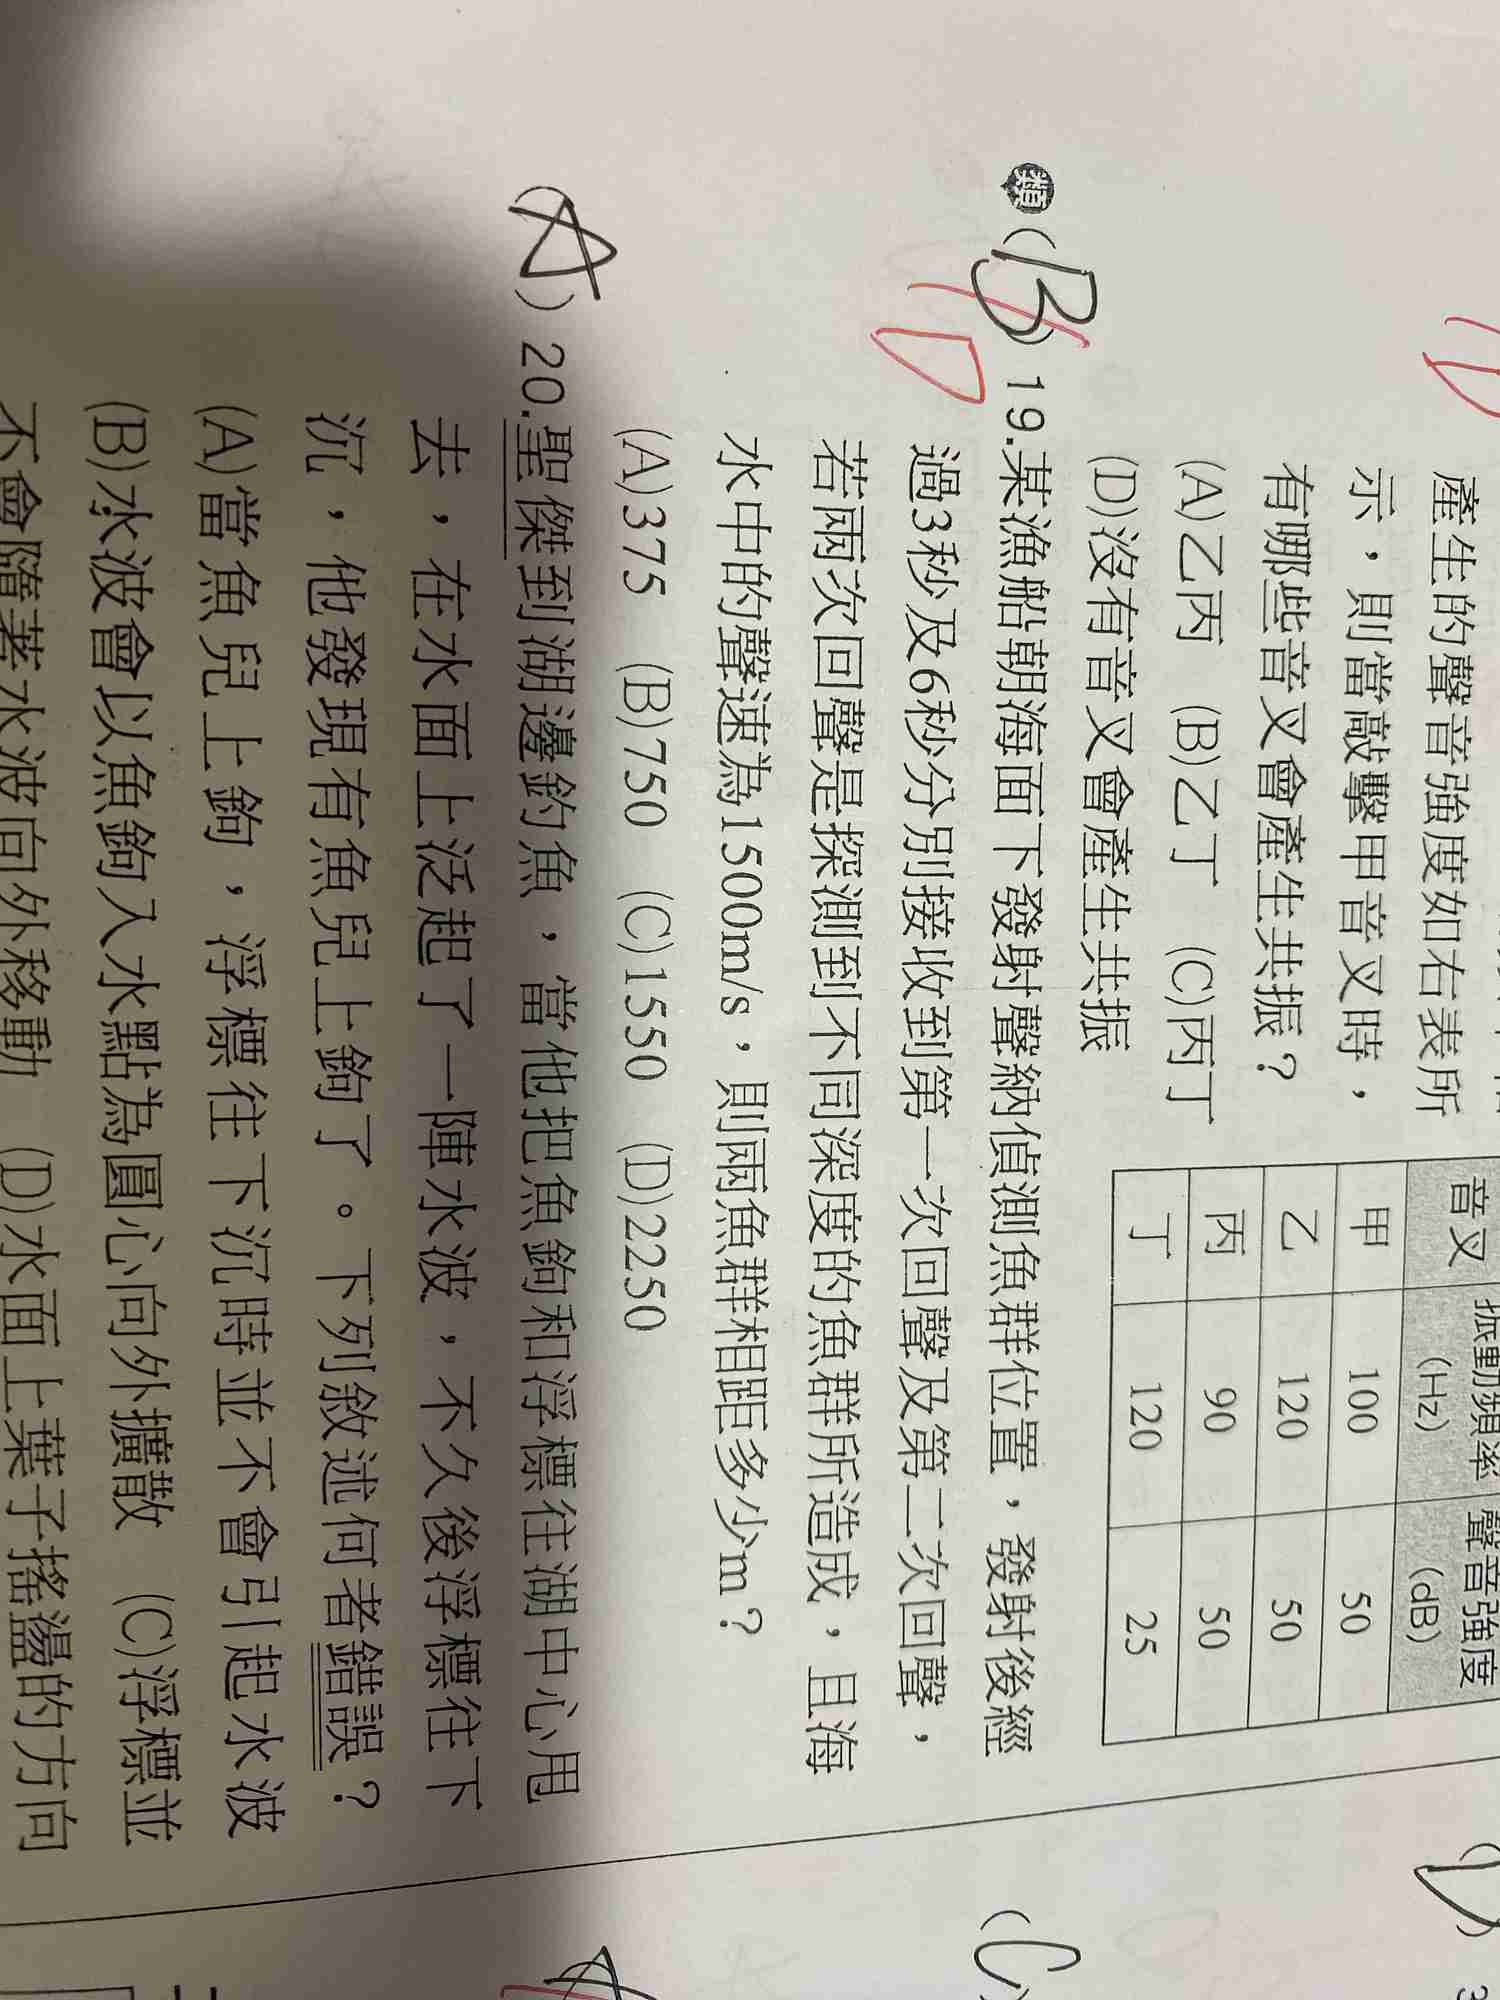 產生的聲音強度如右表所
示，則當敲擊甲音叉時，
有哪些音叉會產生共振？
(A)乙丙 (B)乙丁 (C)丙丁
(D)沒有音叉會產生共振
音叉 振動頻率(Hz) 聲音強度(dB)
甲 100 50
乙 120 50
丙 90 50
丁 120 25
類(B)19.某漁船朝海面下發射聲納偵測魚群位置，發射後經
D
過3秒及6秒分別接收到第一次回聲及第二次回聲，
若兩次回聲是探測到不同深度的魚群所造成，且海
水中的聲速為1500m/s，則兩魚群相距多少m？
(A)375 (B)750 (C)1550 (D)2250
(A)20.聖傑到湖邊釣魚，當他把魚鉤和浮標往湖中心甩
去，在水面上泛起了一陣水波，不久後浮標往下
沉，他發現有魚兒上鉤了。下列敘述何者錯誤？
(A)當魚兒上鉤，浮標往下沉時並不會引起水波
(B)水波會以魚鉤入水點為圓心向外擴散 (C)浮標並
不會隨著水波向外移動 (D)水面上葉子搖盪的方向
(C)